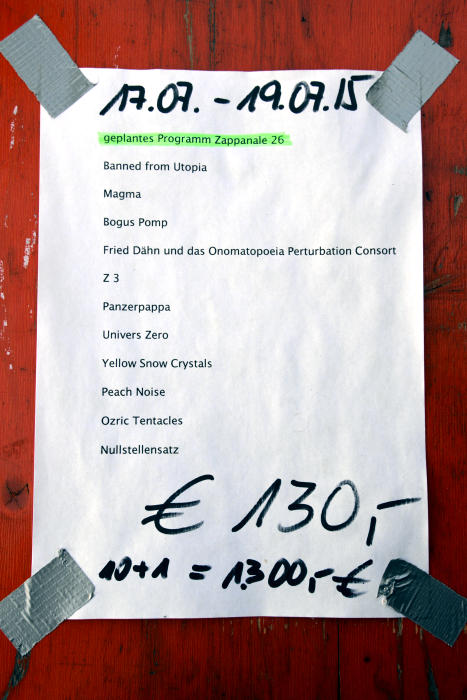 17.07. - 19.07.15
geplantes Programm Zappanale 26
Banned from Utopia
Magma
Bogus Pomp
Fried Dähn und das Onomatopoeia Perturbation Consort
Z 3
Panzerpappa
Univers Zero
Yellow Snow Crystals
Peach Noise
Ozric Tentacles
Nullstellensatz
€ 130,-
10+1 = 1.300,- €